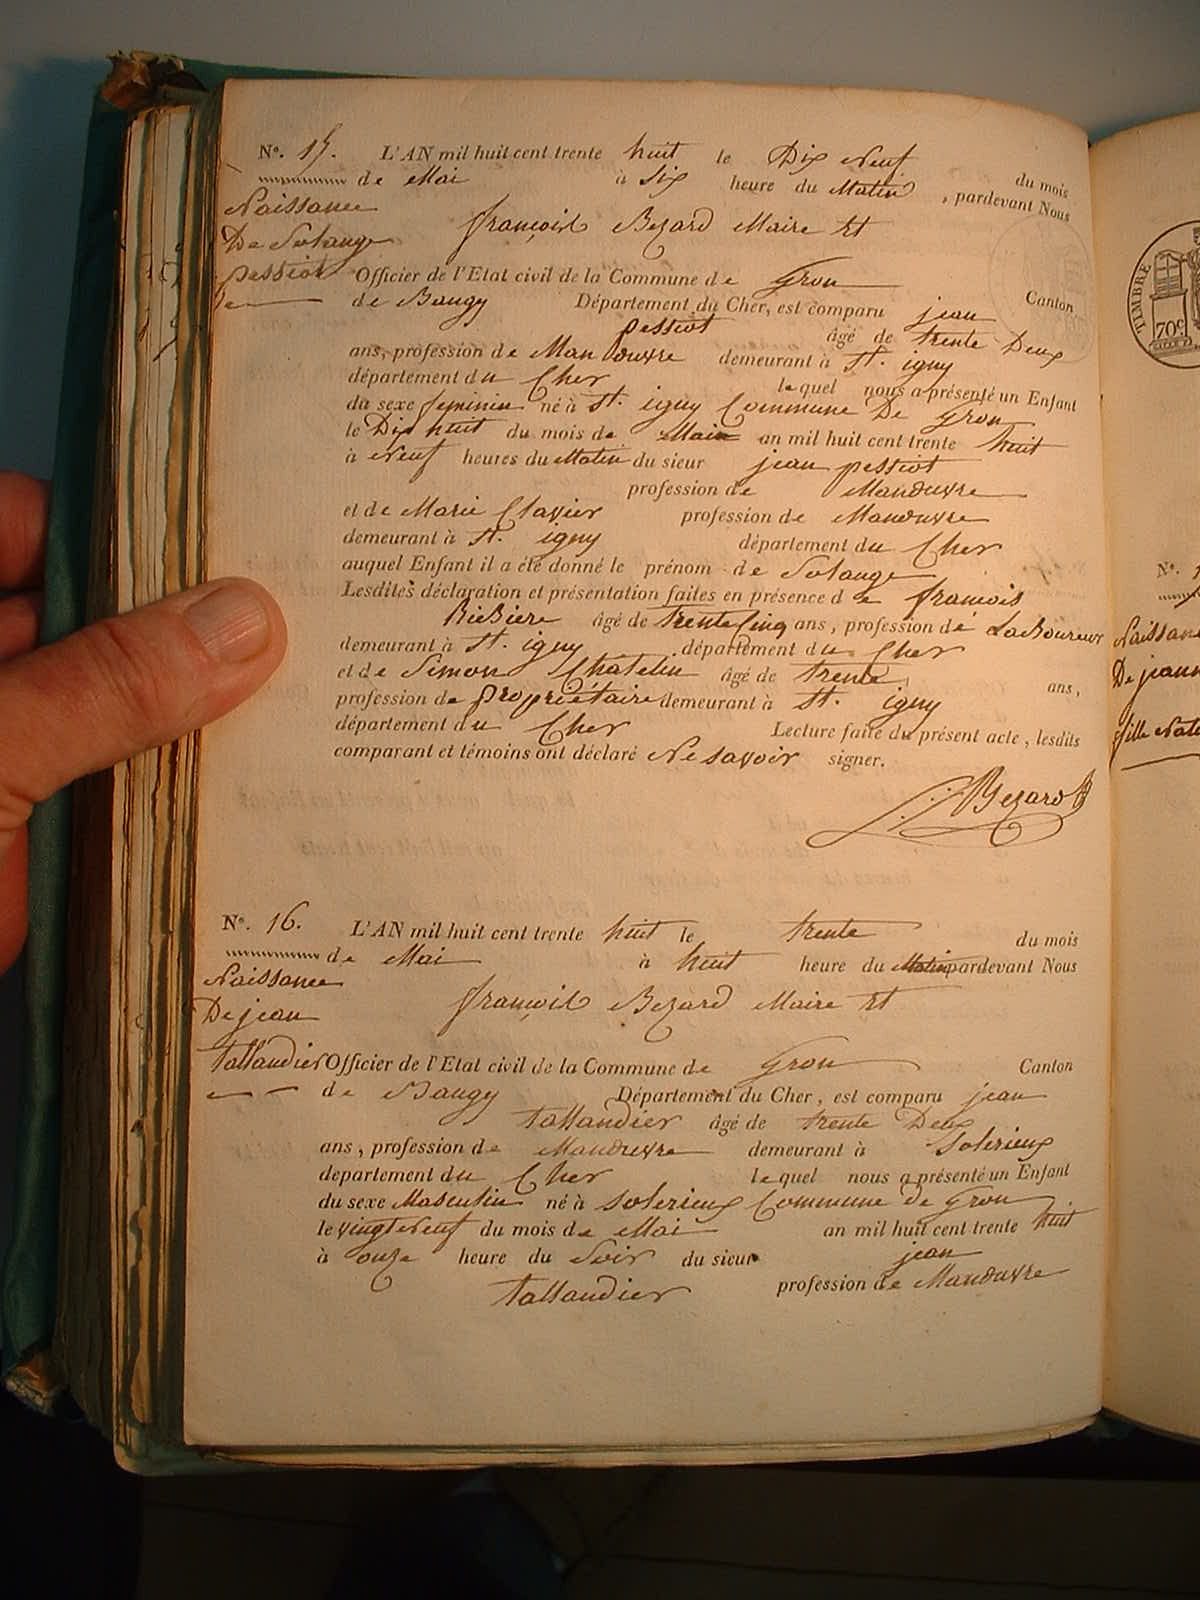 No. 15. L'AN mil huit cent trente huit le Dix Neuf du mois
de Mai à Six heure du Matin, pardevant Nous
Naissance
De Solange françois Bezard Maire Et
pessiot Officier de l'Etat civil de la Commune de Gron Canton
de Baugy Département du Cher, est comparu jean
pessiot âgé de trente Deux
ans, profession de Manouvre demeurant à St. igny
département du Cher lequel nous a présenté un Enfant
du sexe feminin né à St. igny Commune De Gron
le Dix huit du mois de Mai an mil huit cent trente huit
à Neuf heures du Matin du sieur jean pessiot
profession de Manouvre
et de Marie Clavier profession de Manouvre
demeurant à St. igny département du Cher
auquel Enfant il a été donné le prénom de Solange
Lesdites déclaration et présentation faites en présence de francois
RieBiere âgé de trente Cinq ans, profession de LaBoureux
demeurant à St. igny département du Cher
et de Simon Châtelin âgé de trente ans,
profession de propriétaire demeurant à St. igny
département du Cher Lecture faite du présent acte, lesdits
comparant et témoins ont déclaré Ne savoir signer.
Bezard
No. 16. L'AN mil huit cent trente huit le trente du mois
de Mai à huit heure du Matin pardevant Nous
Naissance
De jean françois Bezard Maire Et
tallandier Officier de l'Etat civil de la Commune de Gron Canton
de Baugy Département du Cher, est comparu jean
tallandier âgé de trente Deux
ans, profession de Manouvre demeurant à Solerieux
département du Cher lequel nous a présenté un Enfant
du sexe Masculin né à Solerieux Commune de Gron
le vingt Neuf du mois de Mai an mil huit cent trente huit
à onze heure du Soir du sieur jean
tallandier profession de Manouvre
TIMBRE
70c
No. 1
Naissan
De jeann
fille Nate